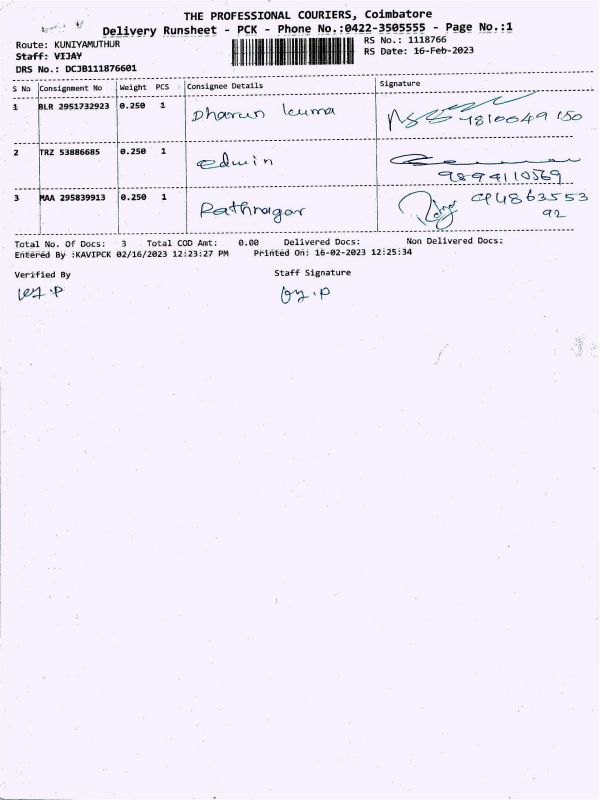 THE PROFESSIONAL COURIERS, Coimbatore
Delivery Runsheet - PCK - Phone No.:0422-3505555 - Page No.:1
Route: KUNIYAMUTHUR
RS No.: 1118766
Staff: VIJAY
RS Date: 16-Feb-2023
DRS No.: DCJB111876601
S No Consignment No Weight PCS Consignee Details Signature
1 BLR 2951732923 0.250 1 Dharun kuma 4816049 150
2 TRZ 53886685 0.250 1 edwin
9894110569
3 MAA 295839913 0.250 1 Rathnagar 94863553
92
Total No. Of Docs: 3 Total COD Amt: 0.00 Delivered Docs: Non Delivered Docs:
Entered By :KAVIPCK 02/16/2023 12:23:27 PM Printed On: 16-02-2023 12:25:34
Verified By Staff Signature